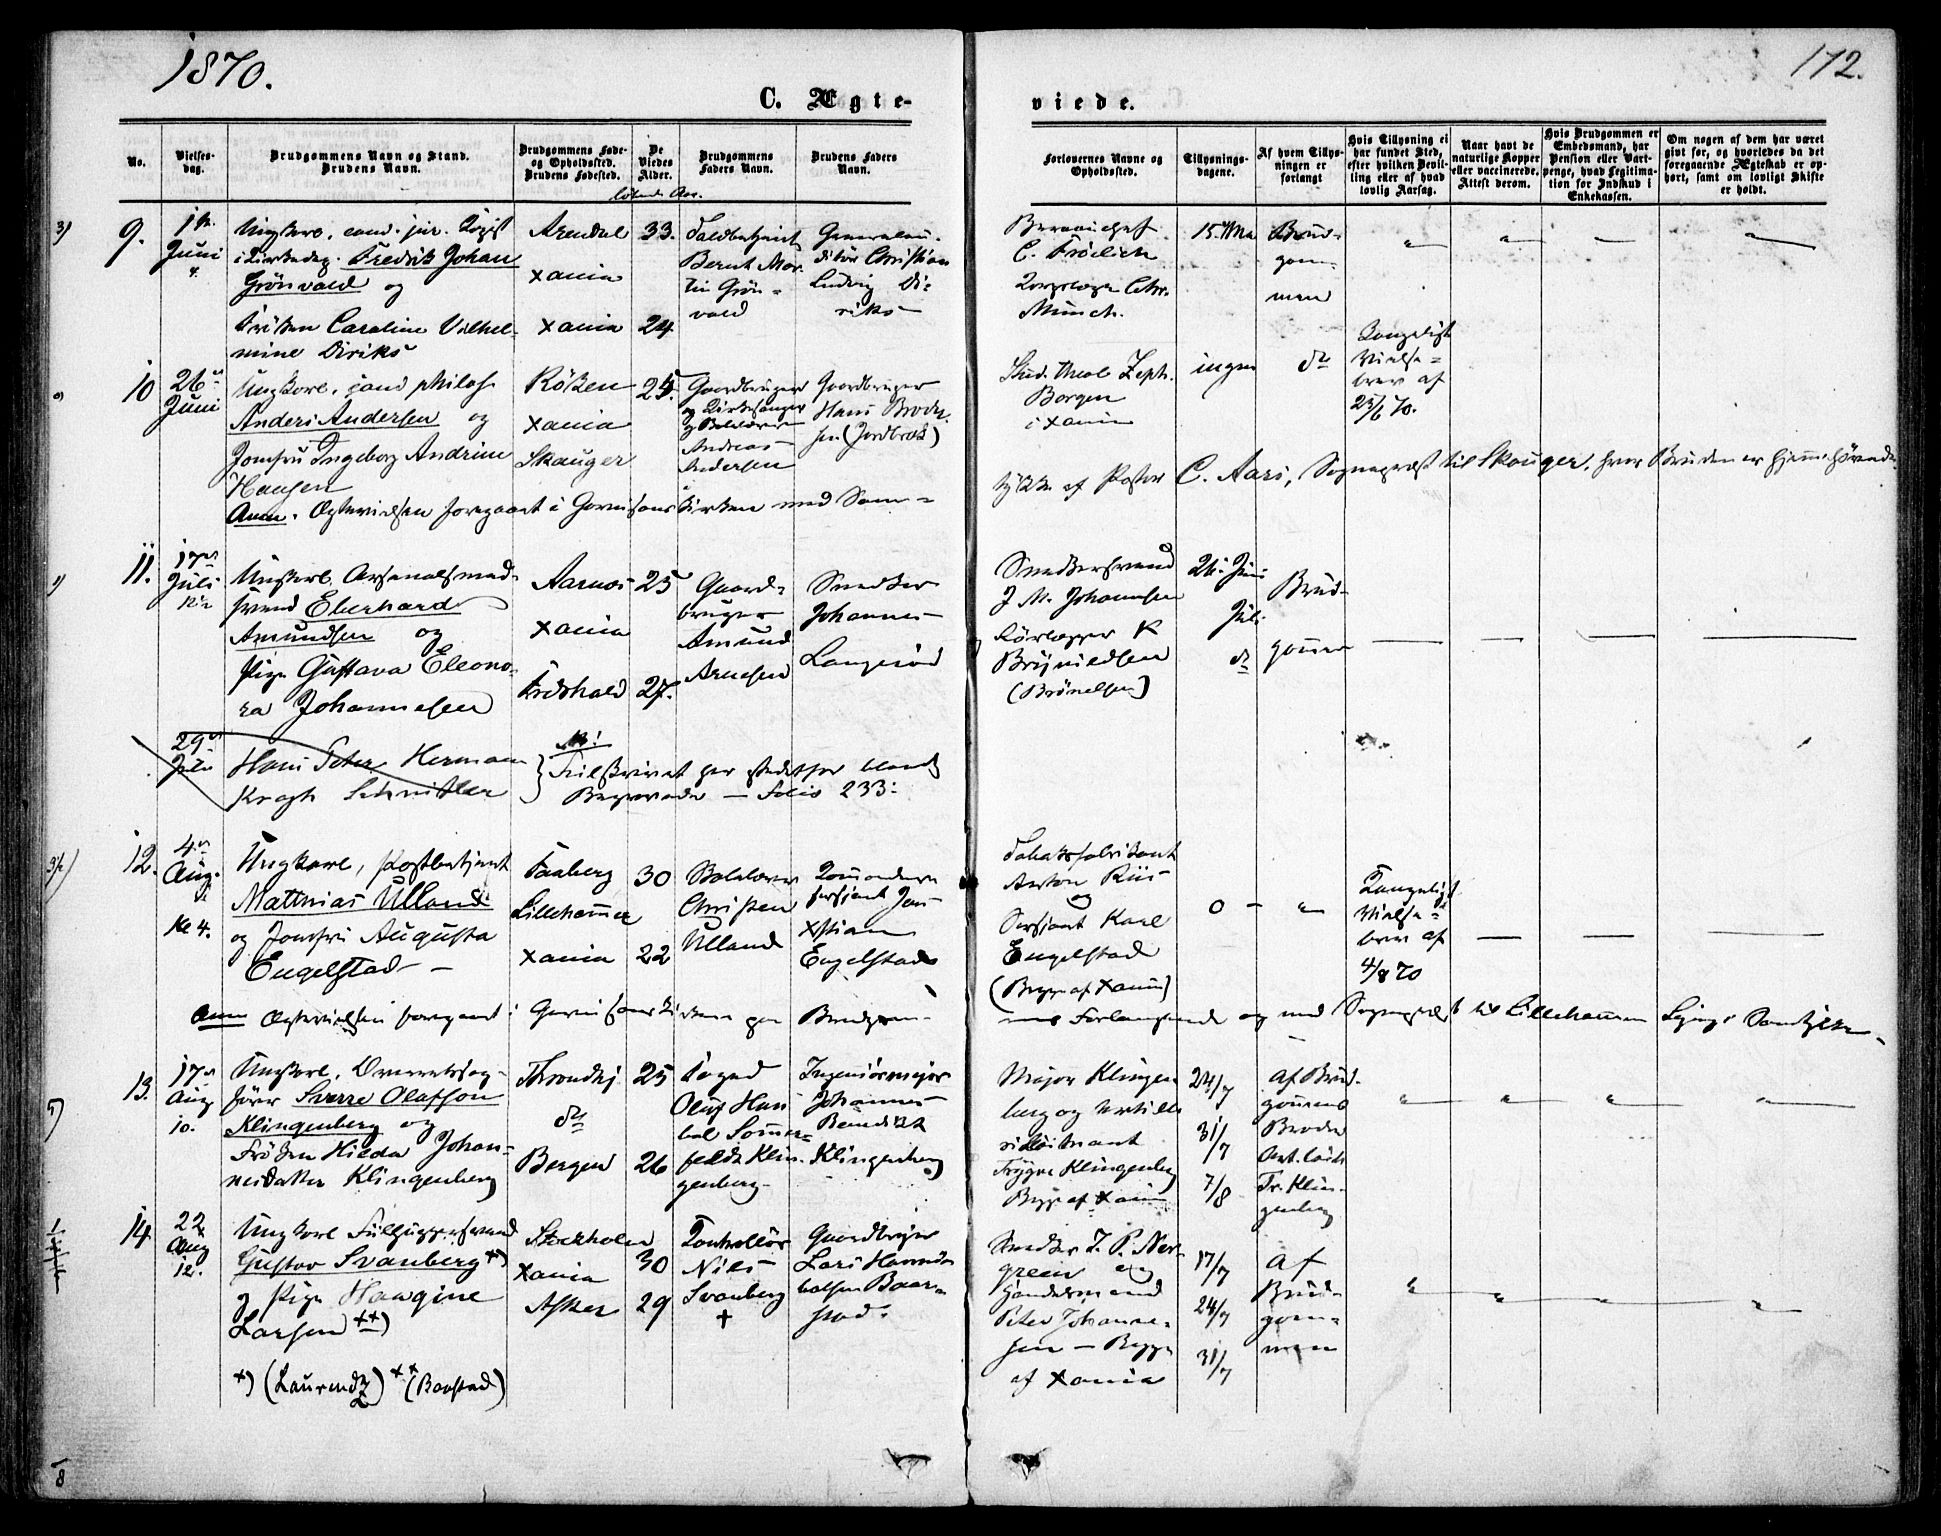 1870.
172.
C. Ægte-
viede.
No.
Vielses-
dag.
Brudgommens Navn og Stand.
Brudens Navn.
Brudgommens Føde-
og Opholdssted.
Brudens Fødested.
De
Viedes
Alder.
Brudgommens
Faders Navn.
Brudens Faders
Navn.
Forlovernes Navne og
Opholdssted.
Tillysnings-
dagene.
Af hvem Tillys-
ningen er
forlangt
Hvis Tillysning ei
har fundet Sted,
efter hvilken Bevil-
ling eller af hvad
lovlig Aarsag.
Naar havt de
naturlige Kopper
eller vaccinerede.
Attest derom.
Hvis Brudgommen er
Embedsmand, har
Pension eller Vart-
penge, hvad Legitima-
tion for Indskud i
Enkekassen.
Om nogen af dem har været
givt før, og hvorledes da det
foregaaende Ægteskab er op-
hørt, samt om lovligt Skifte
er holdt.
løbende Aar.
9.
Juni
4.
Ungkarl, cand. jur.
Fredrik Johan
Grönvold og
Frøken Caroline Vilhel-
mine Diriks
Arendal
Xania
Xania
33.
24
Bernt Mor-
tin Grön-
vold
Christian
Ludvig Di-
riks
C. Frölich
Chr.
Munch.
Brud-
gom-
men
10
26
Juni
Ungkarl, cand philos
Anders Andersen og
Jomfru Ingeborg Andrine
Hansen
Röken
Xania
Skauger
25.
Gaardbruger
og Kirkesanger
Andreas
Andersen
Gaardbruger
Hans
(Jordbræk)
Stud. theol Zeph.
Borgen
i Xania
ingen
do
Kongeligt
Vielse-
brev af
25/6 70.
Anm. Ægtevielsen foregaaet i Garnisons Kirken med Sam-
tykke af Pastor C. Aars, Sognepræst til Skouger, hvor Bruden er hjemmehörende
11.
17
Juli
Ungkarl Arsenalsmed-
svend Eberhard
Amundsen og
Pige Gustava Eleono-
ra Johannesen
Aarnes
Xania
Fredshald
25
27.
Gaard-
bruger
Amund
Arnesen
Snedker
Johannes
Langerød
Snedkersvend
J M. Johannesen
K
(Brönelsen)
26 Juni
Juli
do
Brud-
gommen
29
Juli
Hans Peter Herman
Krogh Schnitler
NB!
Feilskrivet her istedetfor blandt
Begravede - Folio 233.
12.
4
Aug.
Kl 4.
Ungkarl, Postbetjent
Matthias Ulland
og Jomfru Augusta
Engelstad
Faaberg
Lillehammer
Xania
30
22
Skolelærer
Christen
Ulland
sersjant Jon
Xstian
Engelstad
Tobaksfabrikant
Anton Riis
og
Sersjant Karl
Engelstad
(Begge af Xania)
0
Kongeligt
Vielse-
brev af
4/8 70
Anm Ægtevielsen foregaaet i Garnisonskirken paa Brudgom-
mens Forlangende og med Sognepræst til Lillehammer Samtykke
13.
17
Aug
10.
Ungkarl. Overretssag-
förer Sverre Olafson
Klingenberg og
Fröken Hilda Johan-
nesdatter Klingenberg
Throndhj
do
Bergen
25
26
Foged
Oluf Han
bal Sommer-
feldt Klin-
genberg
Ingeniörmajor
Johannes
Benedikt
Klingenberg
Major Klingen
berg og Artille
rilöitnant
Trygve Klingenberg
Begge af Xania
24/7
31/7
7/8
Af Brud-
gommens
Broder
Art. löit
Tr. Klin-
genberg
14
22
Aug
12.
Ungkarl
Gustav Svanberg x)
og Pige Haagine
Larsen xx)
x) (Laurends) xx (Baastad)
Stockholm
Xania
Asker
30
29
Kontrollör
Nils
Svanberg
+
Gaardbruger
Lars
Baar-
stad.
Snedker J. P. Ner-
green og
Handelsmand
Peter Johanne-
sen - Begge
af Xania
17/7
24/7
31/7
Af
Brud-
gom-
men